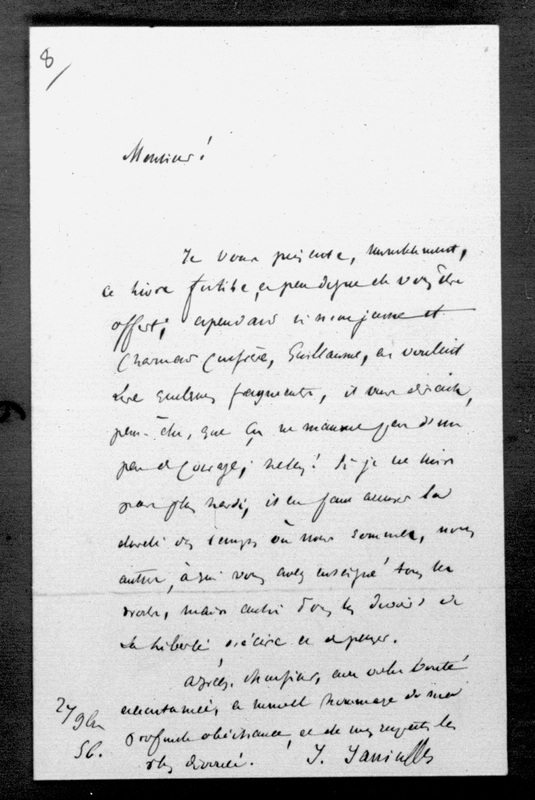 8/
Monsieur!
Je vous présente, humblement,
ce livre futile, et peu digne de vous être
offert; cependant si mon jeune et
charmant confrère, Guillaume, en voulait
lire quelques fragments, il vous dirait,
peut-être, que ça ne manque pas d'un
peu de courage; hélas! si je ne suis
pas plus hardi, il en faut accuser la
dureté des temps où nous sommes, nous
autres, à qui vous avez enseigné tous les
droits, mais aussi tous les devoirs de
la liberté d'écrire et de penser.
Agréez, Monsieur, avec votre bonté
accoutumée, ce nouvel hommage de ma
profonde obéissance, et de mes respects les
plus dévoués. J. Janin
27
9bre
56.